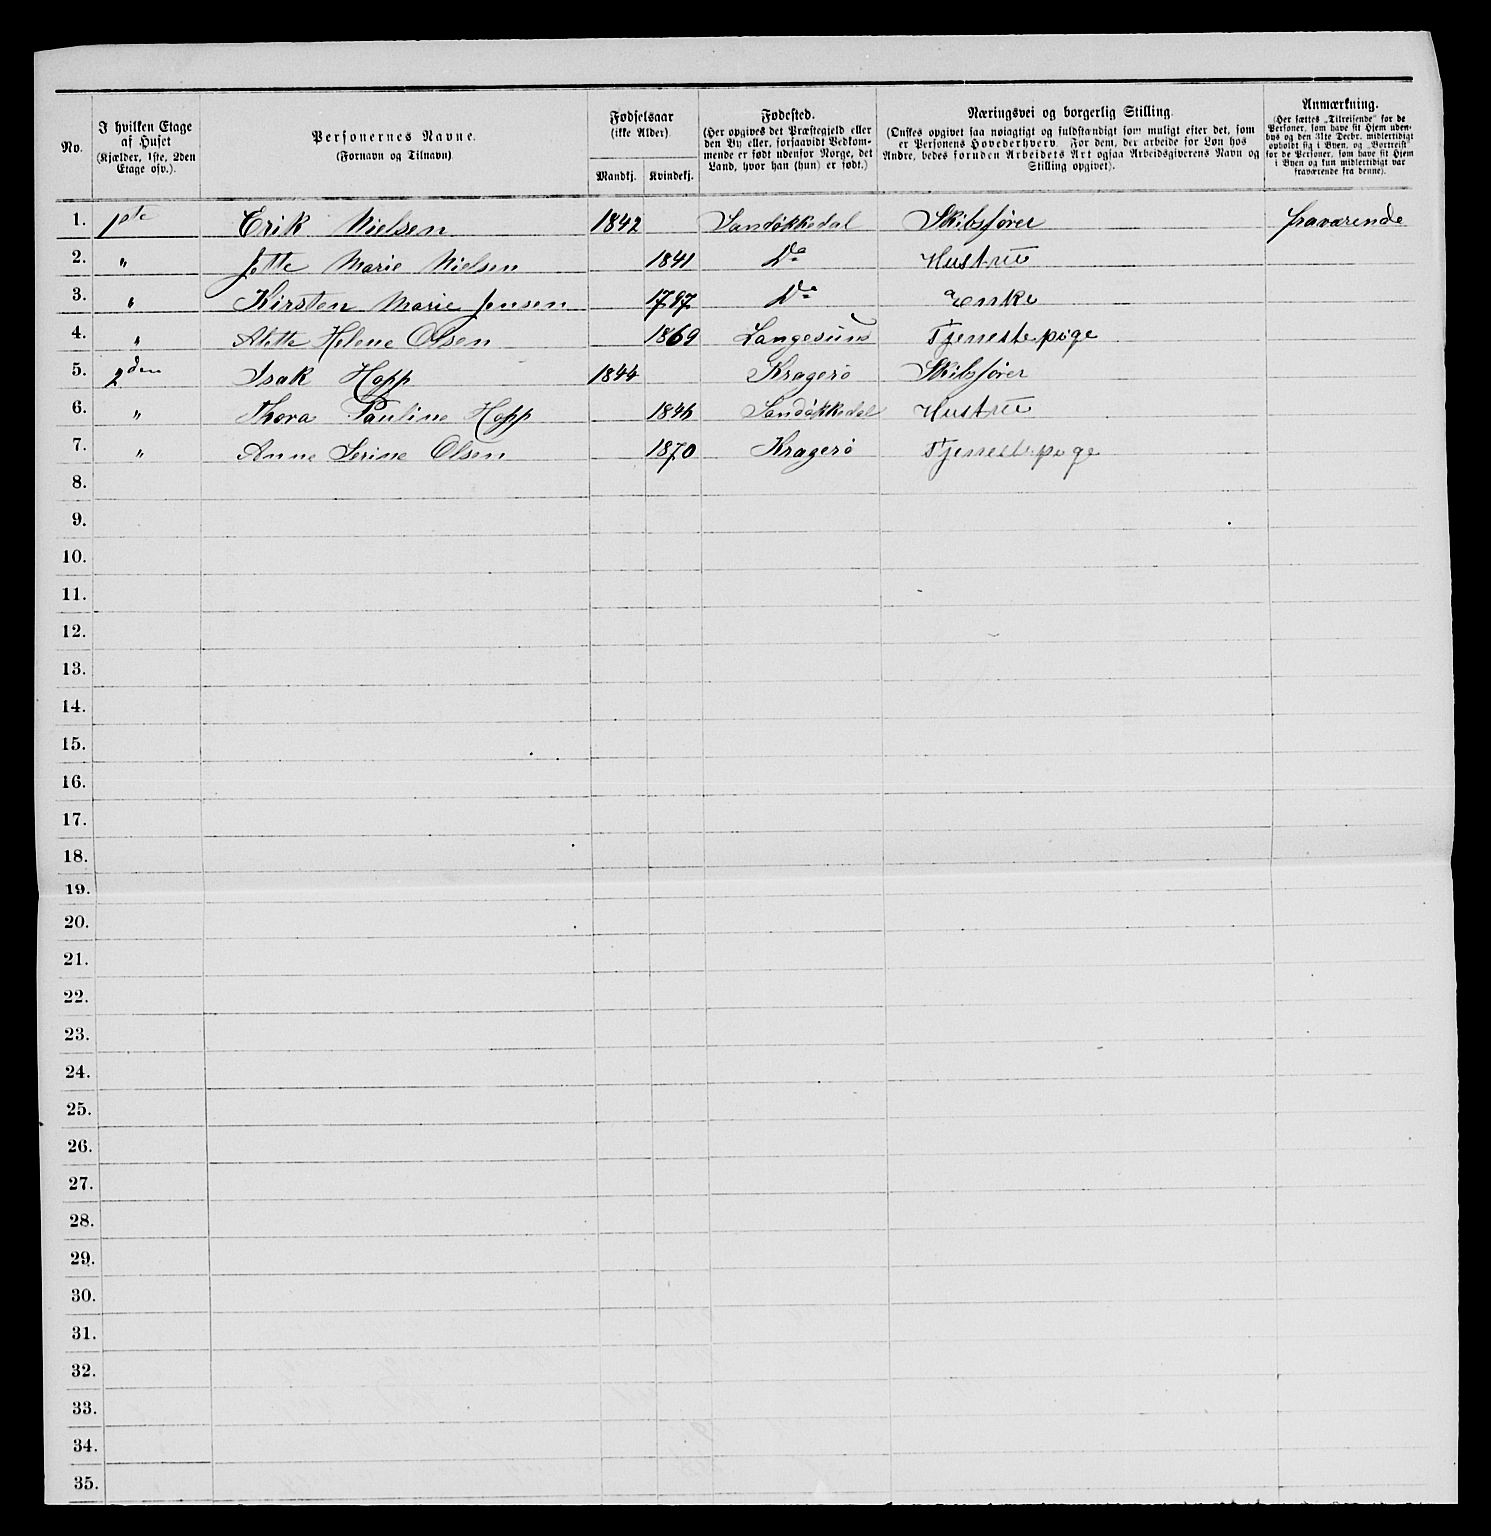 No.
I hvilken Etage af Huset (Kjælder, 1ste, 2den Etage osv.).
Personernes Navne.
(Fornavn og Tilnavn)
Fødselsaar
(ikke Alder).
Mandkj. Kvindekj.
Fødested.
(Her opgives det Præstegjeld eller den By eller, forsaavidt Vedkommende er født udenfor Norge, det Land, hvor han (hun) er født.)
Næringsvei og borgerlig Stilling.
(Ønskes opgivet saa nøiagtigt og fuldstændigt som muligt efter det, som er Personens Hovederhverv. For dem, der arbeide for Løn hos Andre, bedes foruden Arbeidets Art ogsaa Arbeidsgiverens Navn og Stilling opgivet).
Anmærkning.
(Her sættes „Tilreisende" for de Personer, som have sit Hjem udenbys og den 31te Decbr. midlertidigt opholdt sig i Byen, og „Bortreist" for de Personer, som have sit Hjem i Byen og kun midlertidigt var fraværende fra denne).
1. 1ste Erik Nielsen 1842 Sandøkkedal Skibsfører fraværende
2. " Jette Marie Nielsen 1841 Do Hustru
3. " Kirsten Marie Jensen 1797 Do Enke
4. " Alette Helene Olsen 1869 Langesund Tjenestepige
5. 2den Isak Hopp 1844 Kragerø Skibsfører
6. " Thora Pauline Hopp Sandøkkedal Hustru
7. " Anne Serine Olsen 1870 Kragerø Tjenestepige
8.
9.
10.
11.
12.
13.
14.
15.
16.
17.
18.
19.
20.
21.
22.
23.
24.
25.
26.
27.
28.
29.
30.
31.
32.
33.
34.
35.